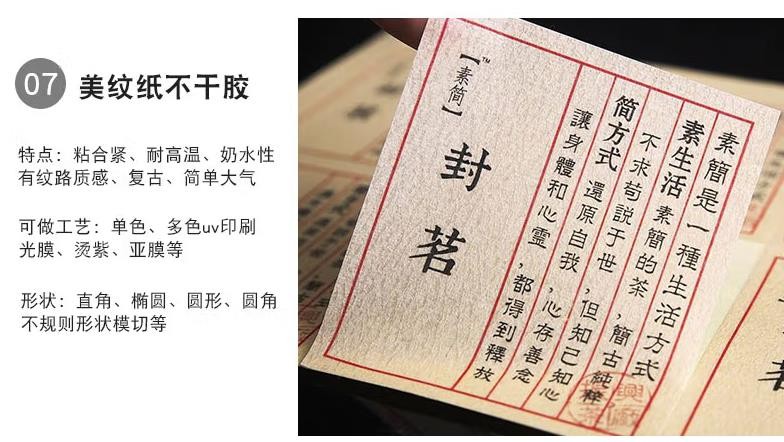 07 美纹纸不干胶
特点：粘合紧、耐高温、奶水性
有纹路质感、复古、简单大气
可做工艺：单色、多色uv印刷
光膜、烫紫、亚膜等
形状：直角、椭圆、圆形、圆角
不规则形状模切等
素簡是一種生活方式
素生活 素簡的茶，簡古純粹
不求苟説于世，但知己知心
簡方式 還原自我，心存善念
讓身體和心靈，都得到釋放
【素简】™
封茗